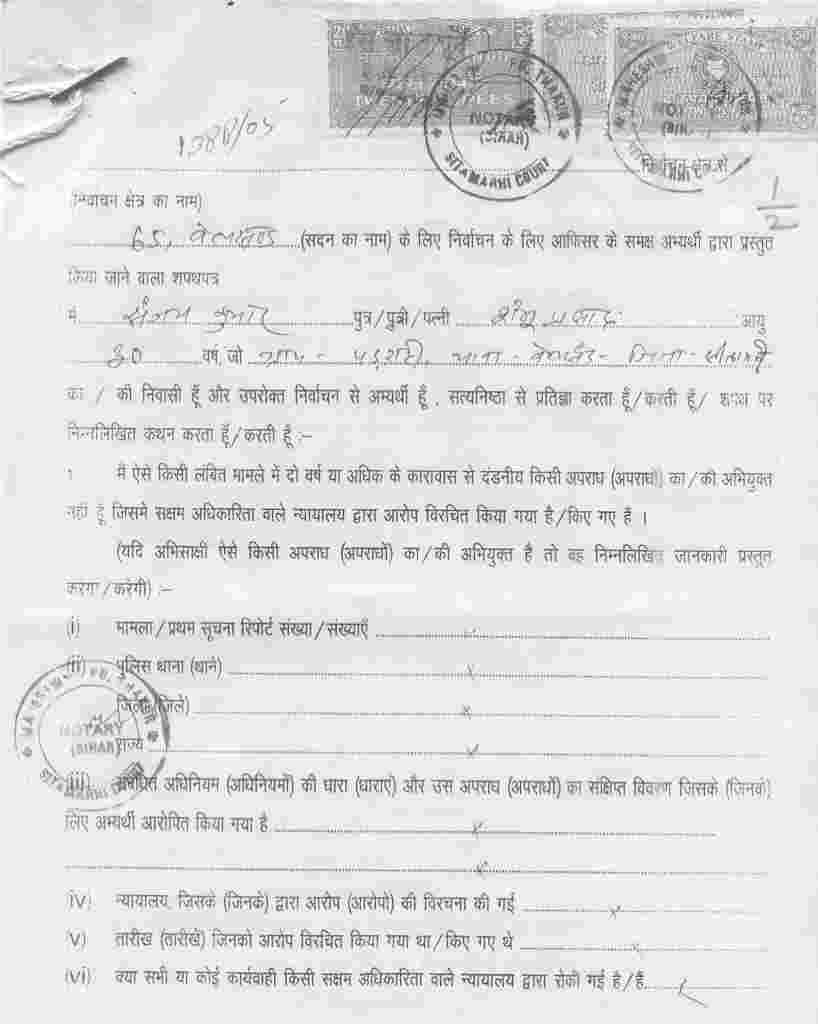 WELFARE STAMP
MAHESHWAR PR. THAKUR
NOTARY
(BIHAR)
SITAMARHI COURT
NOTARY
(BIHAR)
1381/05
निर्वाचन क्षेत्र से
1/2
(निर्वाचन क्षेत्र का नाम)
65, बेलसण्ड (सदन का नाम) के लिए निर्वाचन के लिए आफिसर के समक्ष अभ्यर्थी द्वारा प्रस्तुत
किया जाने वाला शपथपत्र
मैं संजय कुमार पुत्र/पुत्री/पत्नी शंभू प्रसाद आयु
30 वर्ष, जो ग्राम - थाना - जिला - सीतामढ़ी
का / की निवासी हूँ और उपरोक्त निर्वाचन से अभ्यर्थी हूँ, सत्यनिष्ठा से प्रतिज्ञा करता हूँ/करती हूँ/ शपथ पर
निम्नलिखित कथन करता हूँ/करती हूँ :-
1 मैं ऐसे किसी लंबित मामले में दो वर्ष या अधिक के कारावास से दंडनीय किसी अपराध (अपराधों) का/की अभियुक्त
नहीं हूँ जिसमे सक्षम अधिकारिता वाले न्यायालय द्वारा आरोप विरचित किया गया है/किए गए हैं ।
(यदि अभिसाक्षी ऐसे किसी अपराध (अपराधों) का/की अभियुक्त है तो वह निम्नलिखित जानकारी प्रस्तुत
करेगा/करेगी) :-
(i) मामला/प्रथम सूचना रिपोर्ट संख्या/संख्याएँ x
(ii) पुलिस थाना (थाने) x
जिला (जिले) x
राज्य x
MAHESHWAR PR. THAKUR
NOTARY
(BIHAR)
SITAMARHI COURT
(iii) संबंधित अधिनियम (अधिनियमों) की धारा (धाराएं) और उस अपराध (अपराधों) का संक्षिप्त विवरण जिसके (जिनके)
लिए अभ्यर्थी आरोपित किया गया है x
x
(iv) न्यायालय, जिसके (जिनके) द्वारा आरोप (आरोपों) की विरचना की गई x
(v) तारीख (तारीखें) जिनको आरोप विरचित किया गया था/किए गए थे x
(vi) क्या सभी या कोई कार्यवाही किसी सक्षम अधिकारिता वाले न्यायालय द्वारा रोकी गई है/हैं